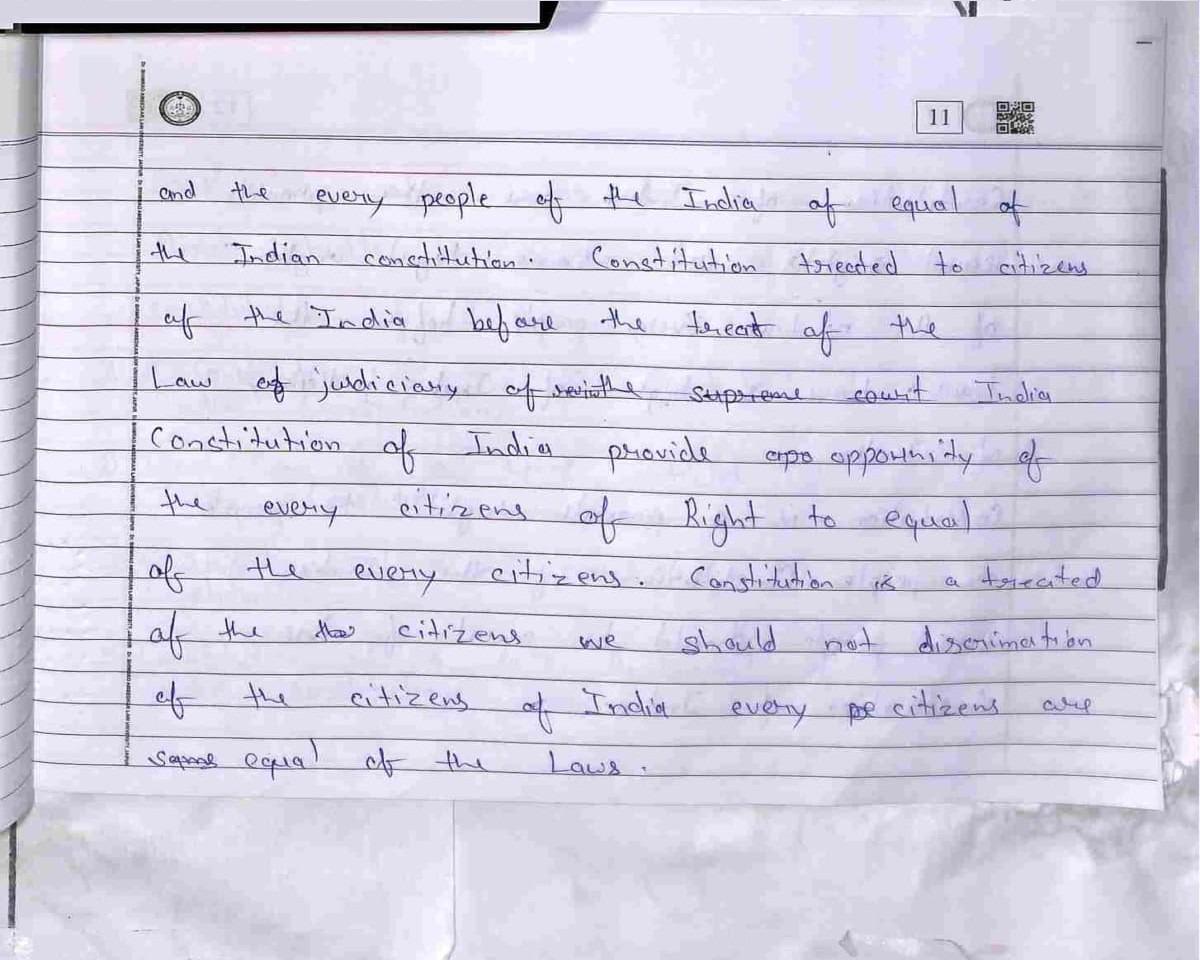 11
and the every people of the India of equal of
the Indian constitution. Constitution treated to citizens
of the India before the treat of the
Law of judiciary of the supreme court India
Constitution of India provide oppownity of
the every citizens of Right to equal
of the every citizens. Constitution is a treated
of the citizens we should not discrimation
of the citizens of India every citizens are
same equal of the Laws.